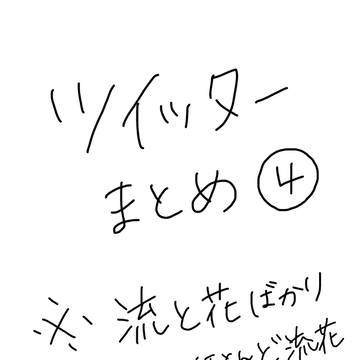 ツイッター
まとめ④
※流と花ばかり
ほとんど流花